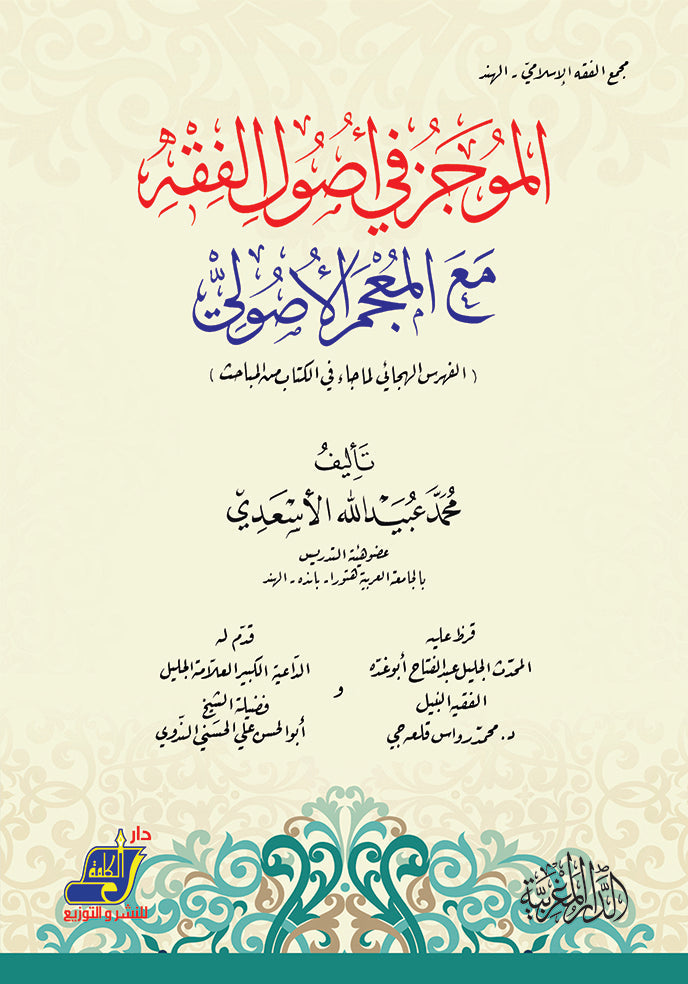 مجمع الفقه الإسلاميّ - الهند
المُوجَزُ في أُصُولِ الفِقْهِ
مَعَ المُعْجَمِ الأُصُوليِّ
( الفهرس الهجائي لما جاء في الكتاب من المباحث )
تَأليفُ
مُحَمَّد عُبَيْد الله الأسْعَدِيّ
عضو هيئة التدريس
بالجامعة العربية هتورا - بانده - الهند
قرظ عليه
المحدّث الجليل عبد الفتاح أبو غدّه
الفقيه النبيل
د. محمّد رواس قلعه جي
و
قدّم له
الدّاعية الكبير العلّامة الجليل
فضيلة الشيخ
أبو الحسن علي الحسَني النّدوي
دار
الكلمة
للنشر و التوزيع
الدَّار المَغْرِبيَّة